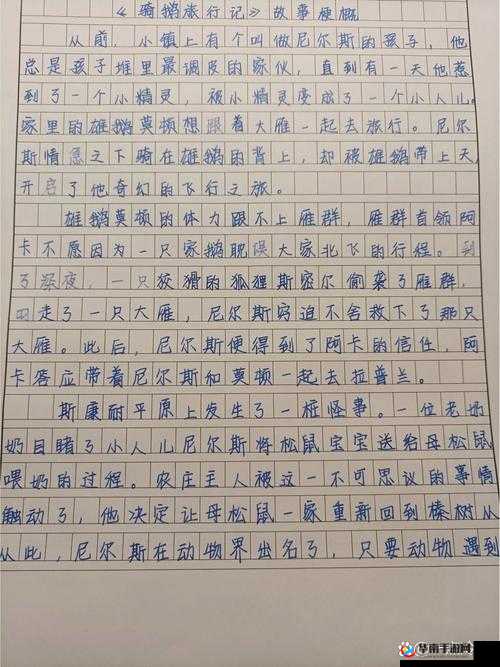 《骑鹅旅行记》故事梗概
从前，小镇上有个叫做尼尔斯的孩子，他
总是孩子堆里最调皮的家伙，直到有一天他惹
到了一个小精灵，被小精灵变成了一个小人儿。
家里的雄鹅莫顿想跟着大雁一起去旅行。尼尔
斯情急之下骑在雄鹅的背上，却被雄鹅带上天，
开启了他奇幻的飞行之旅。
雄鹅莫顿的体力跟不上雁群，雁群首领阿
卡不愿因为一只家鹅耽误大家北飞的行程。到
了深夜，一只狡猾的狐狸斯密尔偷袭了雁群，
叼走了一只大雁，尼尔斯穷追不舍救下了那只
大雁。此后，尼尔斯便得到了阿卡的信任，阿
卡答应带着尼尔斯和莫顿一起去拉普兰。
斯康耐平原上发生了一桩怪事。一位老奶
奶目睹了小人儿尼尔斯将松鼠宝宝送给母松鼠
喂奶的过程。农庄主人被这一不可思议的事情
触动了，他决定让母松鼠一家重新回到榛树从
从此，尼尔斯在动物界出名了，只要动物遇到
华南手游网